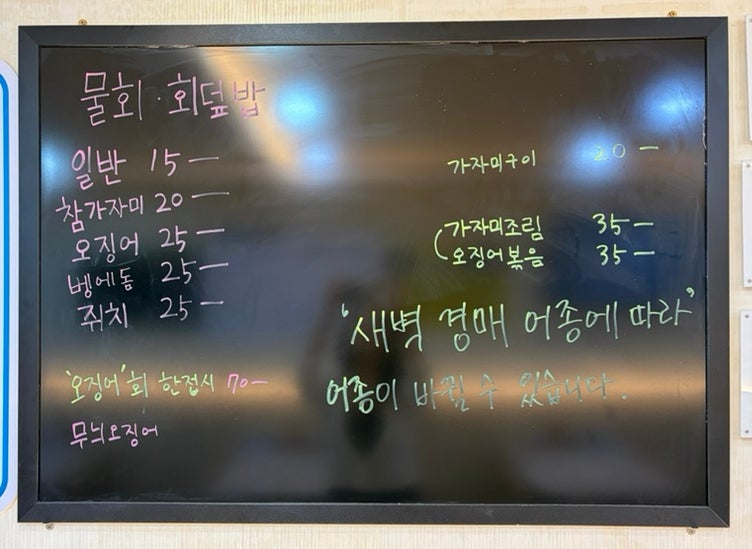 물회·회덮밥
일반 15—
참가자미 20—
오징어 25—
벵에돔 25—
쥐치 25—
'오징어'회 한접시 70—
무늬오징어
가자미구이 20—
가자미조림 35—
오징어볶음 35—
'새벽 경매 어종에 따라'
어종이 바뀔 수 있습니다.